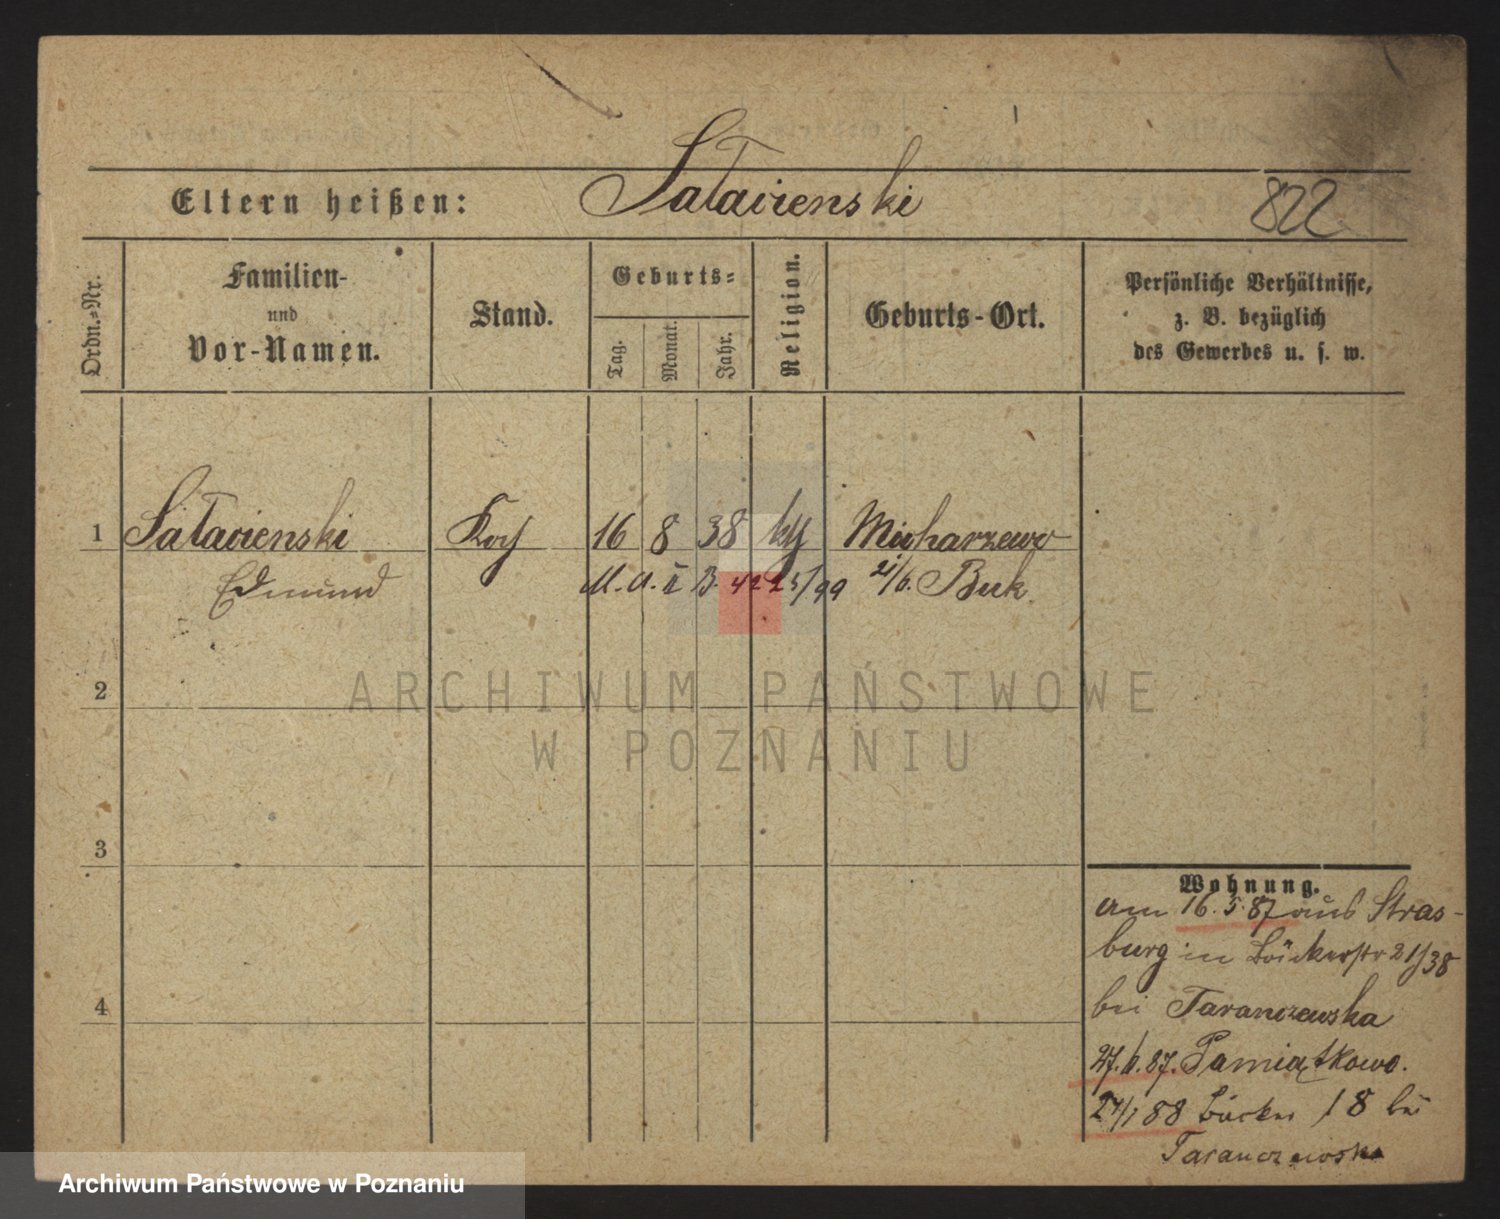 Eltern heißen: Satavienski 822
Ordn.-Nr.
Familien-
und
Vor-Namen.
Stand.
Geburts-
Tag.
Monat.
Jahr.
Religion.
Geburts-Ort.
Persönliche Verhältnisse,
z. B. bezüglich
des Gewerbes u. s. w.
1 Koch 16 8 38 kth
Edmund 42 Buk
2
ARCHIWUM PAŃSTWOWE
W POZNANIU
3
Wohnung.
am 16.5.87 aus Stras-
burg in Bäckerstr 21/38
bei Taranczewska
27.6.87. Pamiątkowo.
24/1 88 Bäcker 18 bei
Taranczewska
4
Archiwum Państwowe w Poznaniu